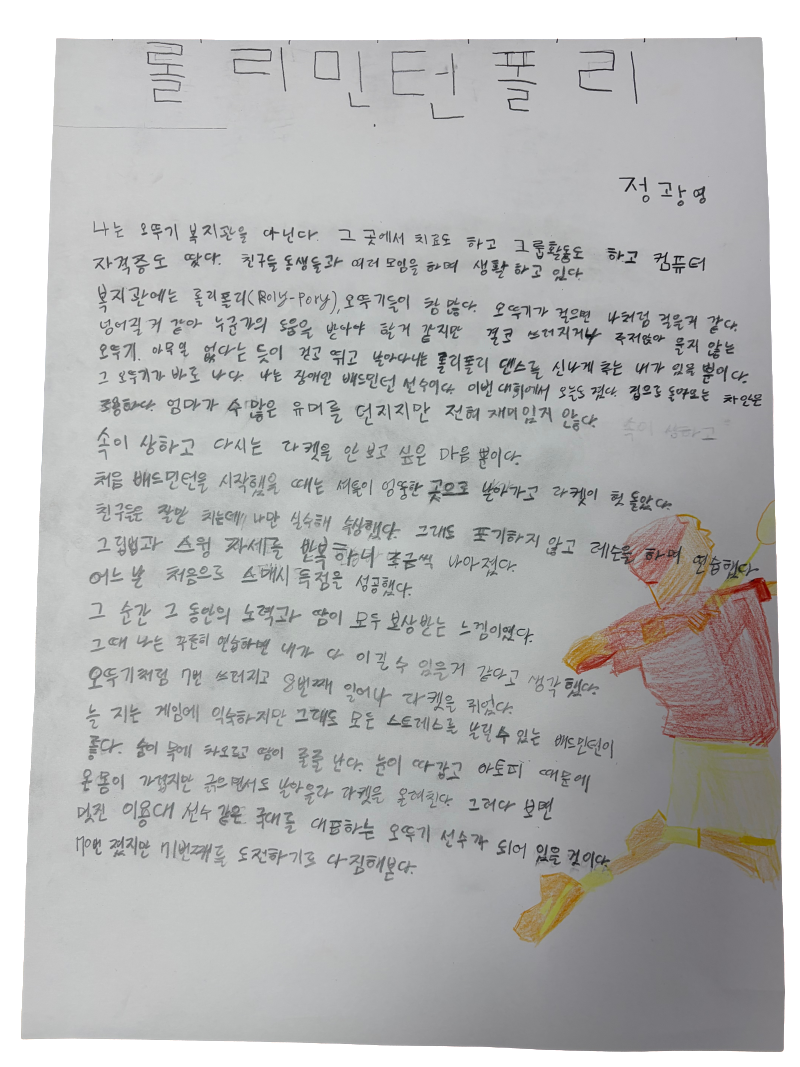 롤리민턴폴리
정광영
나는 오뚜기 복지관을 다닌다. 그 곳에서 치료도 하고 그룹활동도 하고 컴퓨터
자격증도 땄다. 친구들 동생들과 여러 모임을 하며 생활 하고 있다.
복지관에는 롤리폴리(Roly-Pory), 오뚜기들이 참 많다. 오뚜기가 걸으면 나처럼 걸을거 같다.
넘어질거 같아 누군가의 도움을 받아야 할거 같지만 결코 쓰러지거나 주저앉아 울지 않는
오뚜기. 아무일 없다는 듯이 걷고 뛰고 날아다니는 롤리폴리 댄스를 신나게 추는 내가 있을 뿐이다.
그 오뚜기가 바로 나다. 나는 장애인 배드민턴 선수이다. 이번 대회에서 오늘도 졌다. 집으로 돌아오는 차안은
조용하다. 엄마가 수많은 유머를 던지지만 전혀 재미있게 않다. 속이 상하고
속이 상하고 다시는 라켓을 안 보고 싶은 마음 뿐이다.
처음 배드민턴을 시작했을 때는 셔틀이 엉뚱한 곳으로 날아가고 라켓이 헛 돌았다.
친구들은 잘만 치는데 나만 실수해 속상했다. 그래도 포기하지 않고 레슨을 하며 연습했다
그립법과 스윙 자세를 반복하니 조금씩 나아졌다.
어느 날 처음으로 스매시 득점을 성공했다.
그 순간 그 동안의 노력과 땀이 모두 보상받는 느낌이였다.
그때 나는 꾸준히 연습하면 내가 다 이길 수 있을거 같다고 생각했다.
오뚜기처럼 7번 쓰러지고 8번째 일어나 라켓을 쥐었다.
늘 지는 게임에 익숙하지만 그래도 모든 스트레스를 날릴 수 있는 배드민턴이
좋다. 숨이 목에 차오르고 땀이 줄줄 난다. 눈이 따갑고 아토피 때문에
온 몸이 가렵지만 긁으면서도 날아올라 라켓을 올려친다. 그러다 보면
멋진 이용대 선수 같은 국대를 대표하는 오뚜기 선수가 되어 있을 것이다.
70번 졌지만 71번째를 도전하기로 다짐해본다.